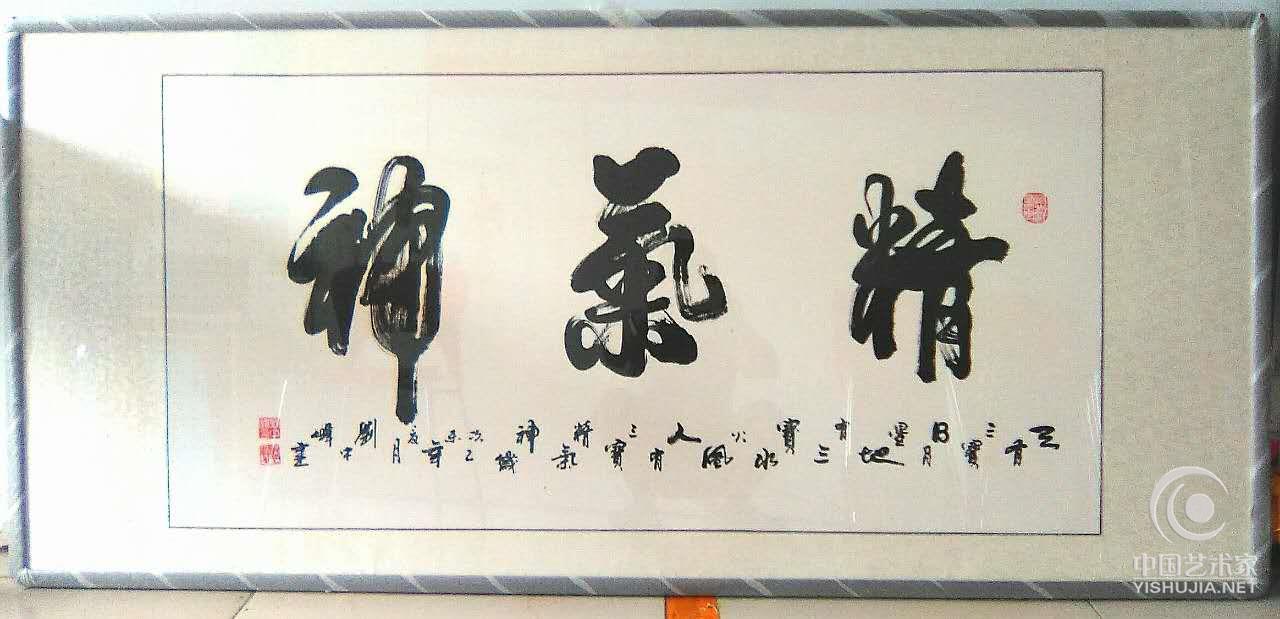 精氣神
天有三寶日月星地有三寶水火風人有三寶精氣神歲次乙未年夏月劉中峰書
中国艺术家
YISHUJIA.NET